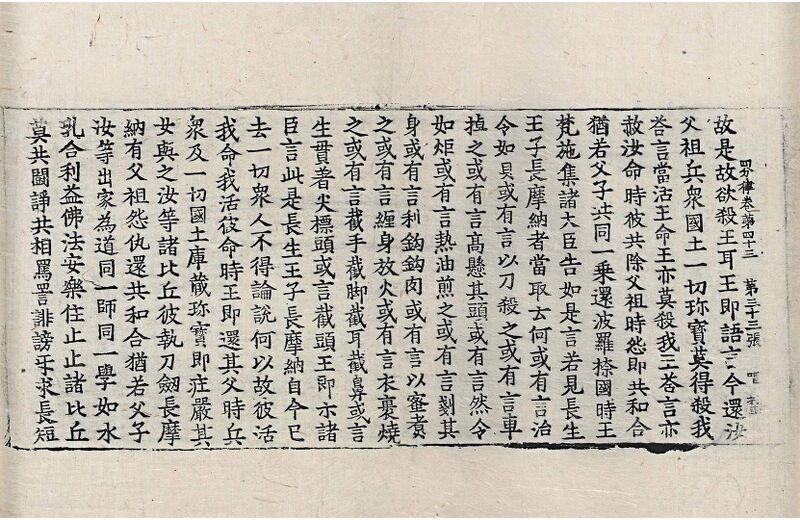 故是故欲殺王耳王即語言今還汝
四分律卷第四十三 第三十三張
父祖兵衆國土一切珎寶莫得殺我
荅言當活王命王亦莫殺我王荅言亦
赦汝命時彼共除父祖時怨即共和合
猶若父子共同一乗還波羅㮈國時王
梵施集諸大臣告如是言若見長生
王子長摩納者當取云何或有言治
令如貝或有言以刀殺之或有言車
之或有言髙懸其頭或有言然令
如炬或有言熱油煎之或有言剗其
身或有言利鈎鈎肉或有言以蜜煮
之或有言纏身放火或有言衣裹燒
之或有言截手截脚截耳截鼻或言
生貫著尖摽頭或言截頭王即示諸
臣言此是長生王子長摩納自今已
去一切衆人不得論說何以故彼活
我命我活彼命時王即還其父時兵
衆及一切國土庫藏珎寶即莊嚴其
女與之汝等諸比丘彼執刀劒長摩
納有父祖怨仇還共和合猶若父子
汝等出家為道同一師同一學如水
乳合利益佛法安樂住止止諸比丘
莫共鬪諍共相罵詈誹謗互求長短